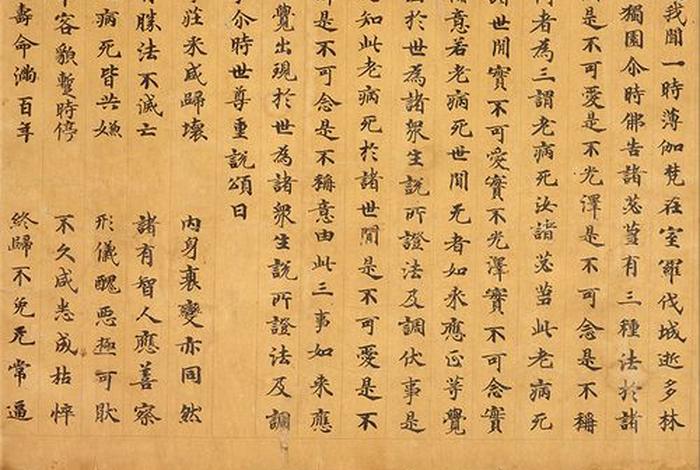 我聞一時薄伽梵在室羅伐城逝多林
獨園尒時佛告諸苾蒭有三種法於諸
是不可愛是不光澤是不可念是不稱
者為三謂老病死汝諸苾蒭此老病死
世間實不可愛實不光澤實不可念實
意若老病死世間无者如來應正等覺
於世為諸衆生說所證法及調伏事是
知此老病死於諸世間是不可愛是不
是不可念是不稱意由此三事如來應
覺出現於世為諸衆生說所證法及調
尒時世尊重說頌曰
莊采咸歸壞 內身衰變亦同然
勝法不滅亡 諸有智人應善察
病死皆共嫌 形儀醜惡極可猒
容貌暫時停 不久咸悉成枯悴
壽命滿百年 終歸不免无常逼